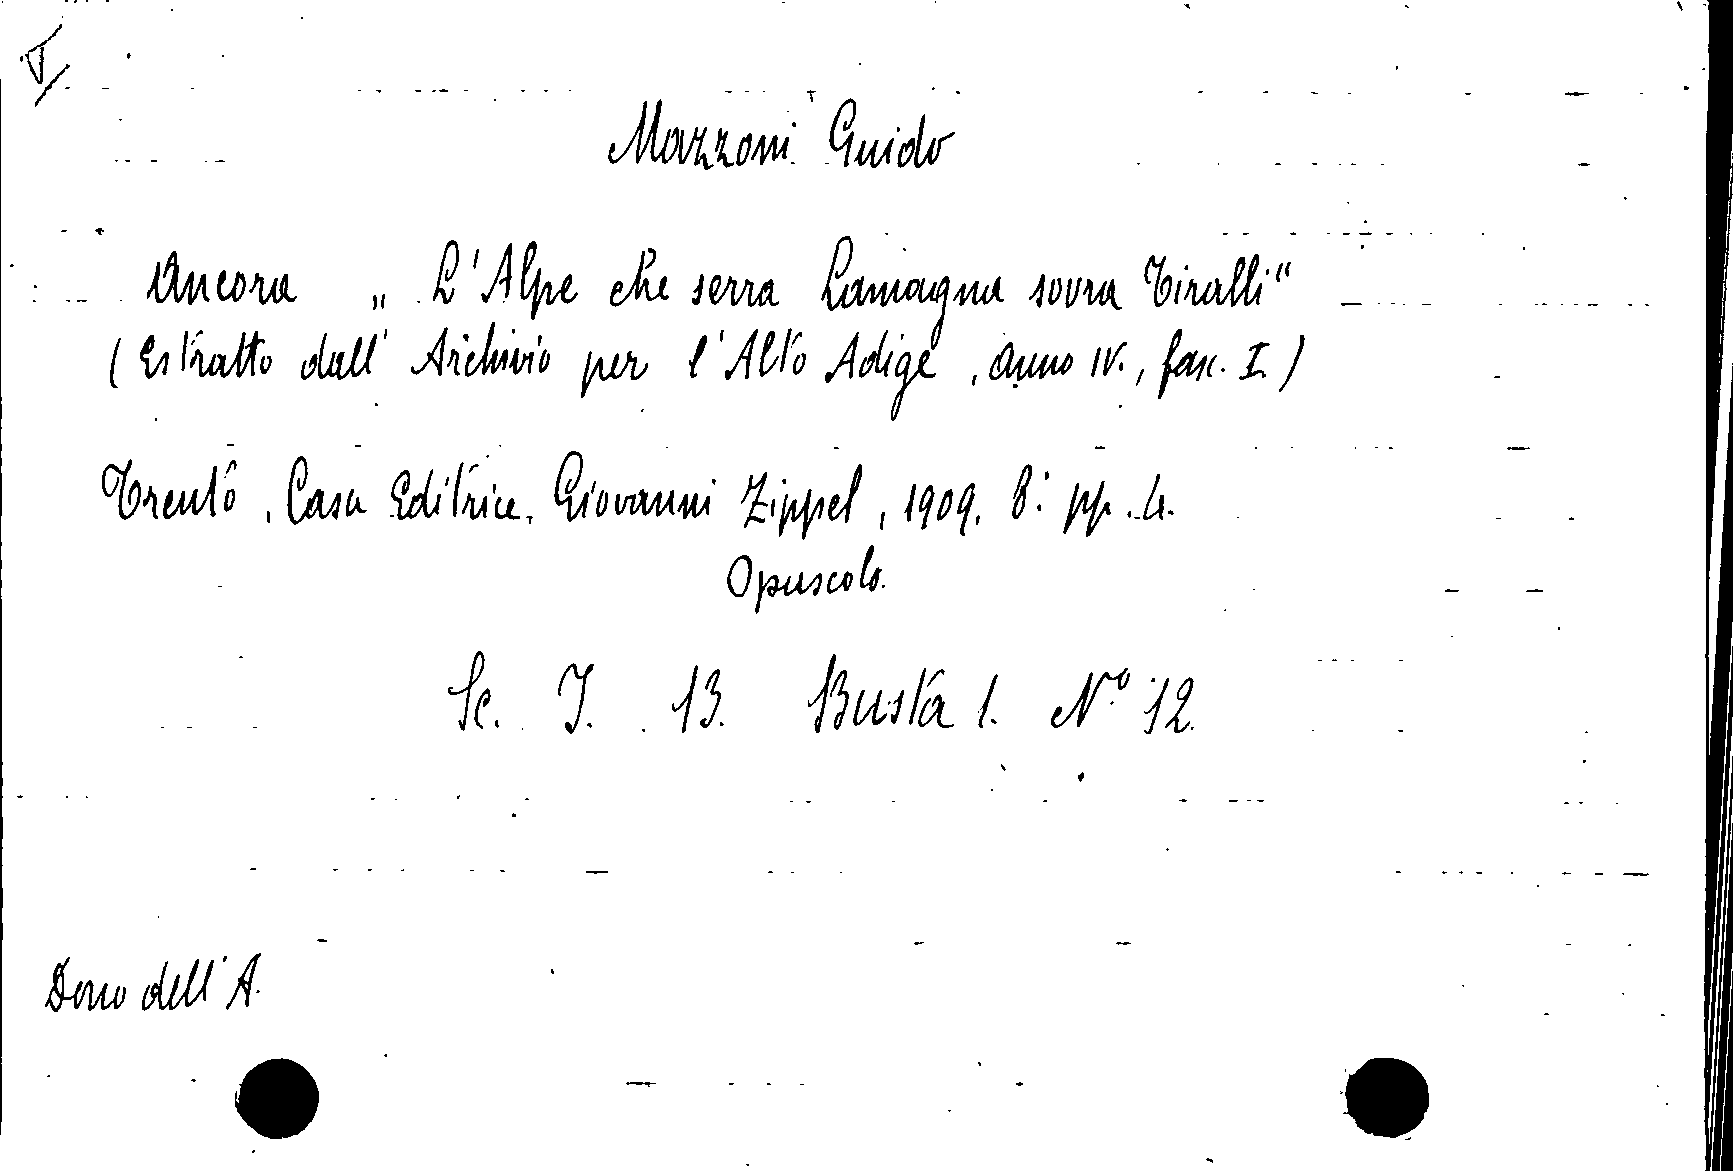 Mazzoni Guido
Ancora „L'Alpe che serra Lamagna sovra Tiralli"
(Estratto dall' Archivio per l'Alto Adige, anno IV., fasc. I.)
Trento, Casa Editrice, Giovanni Zippel, 1909. 8: pp. 4.
Opuscolo.
Sc. I. 13. Busta 1. Nº 12.
Dono dell' A.